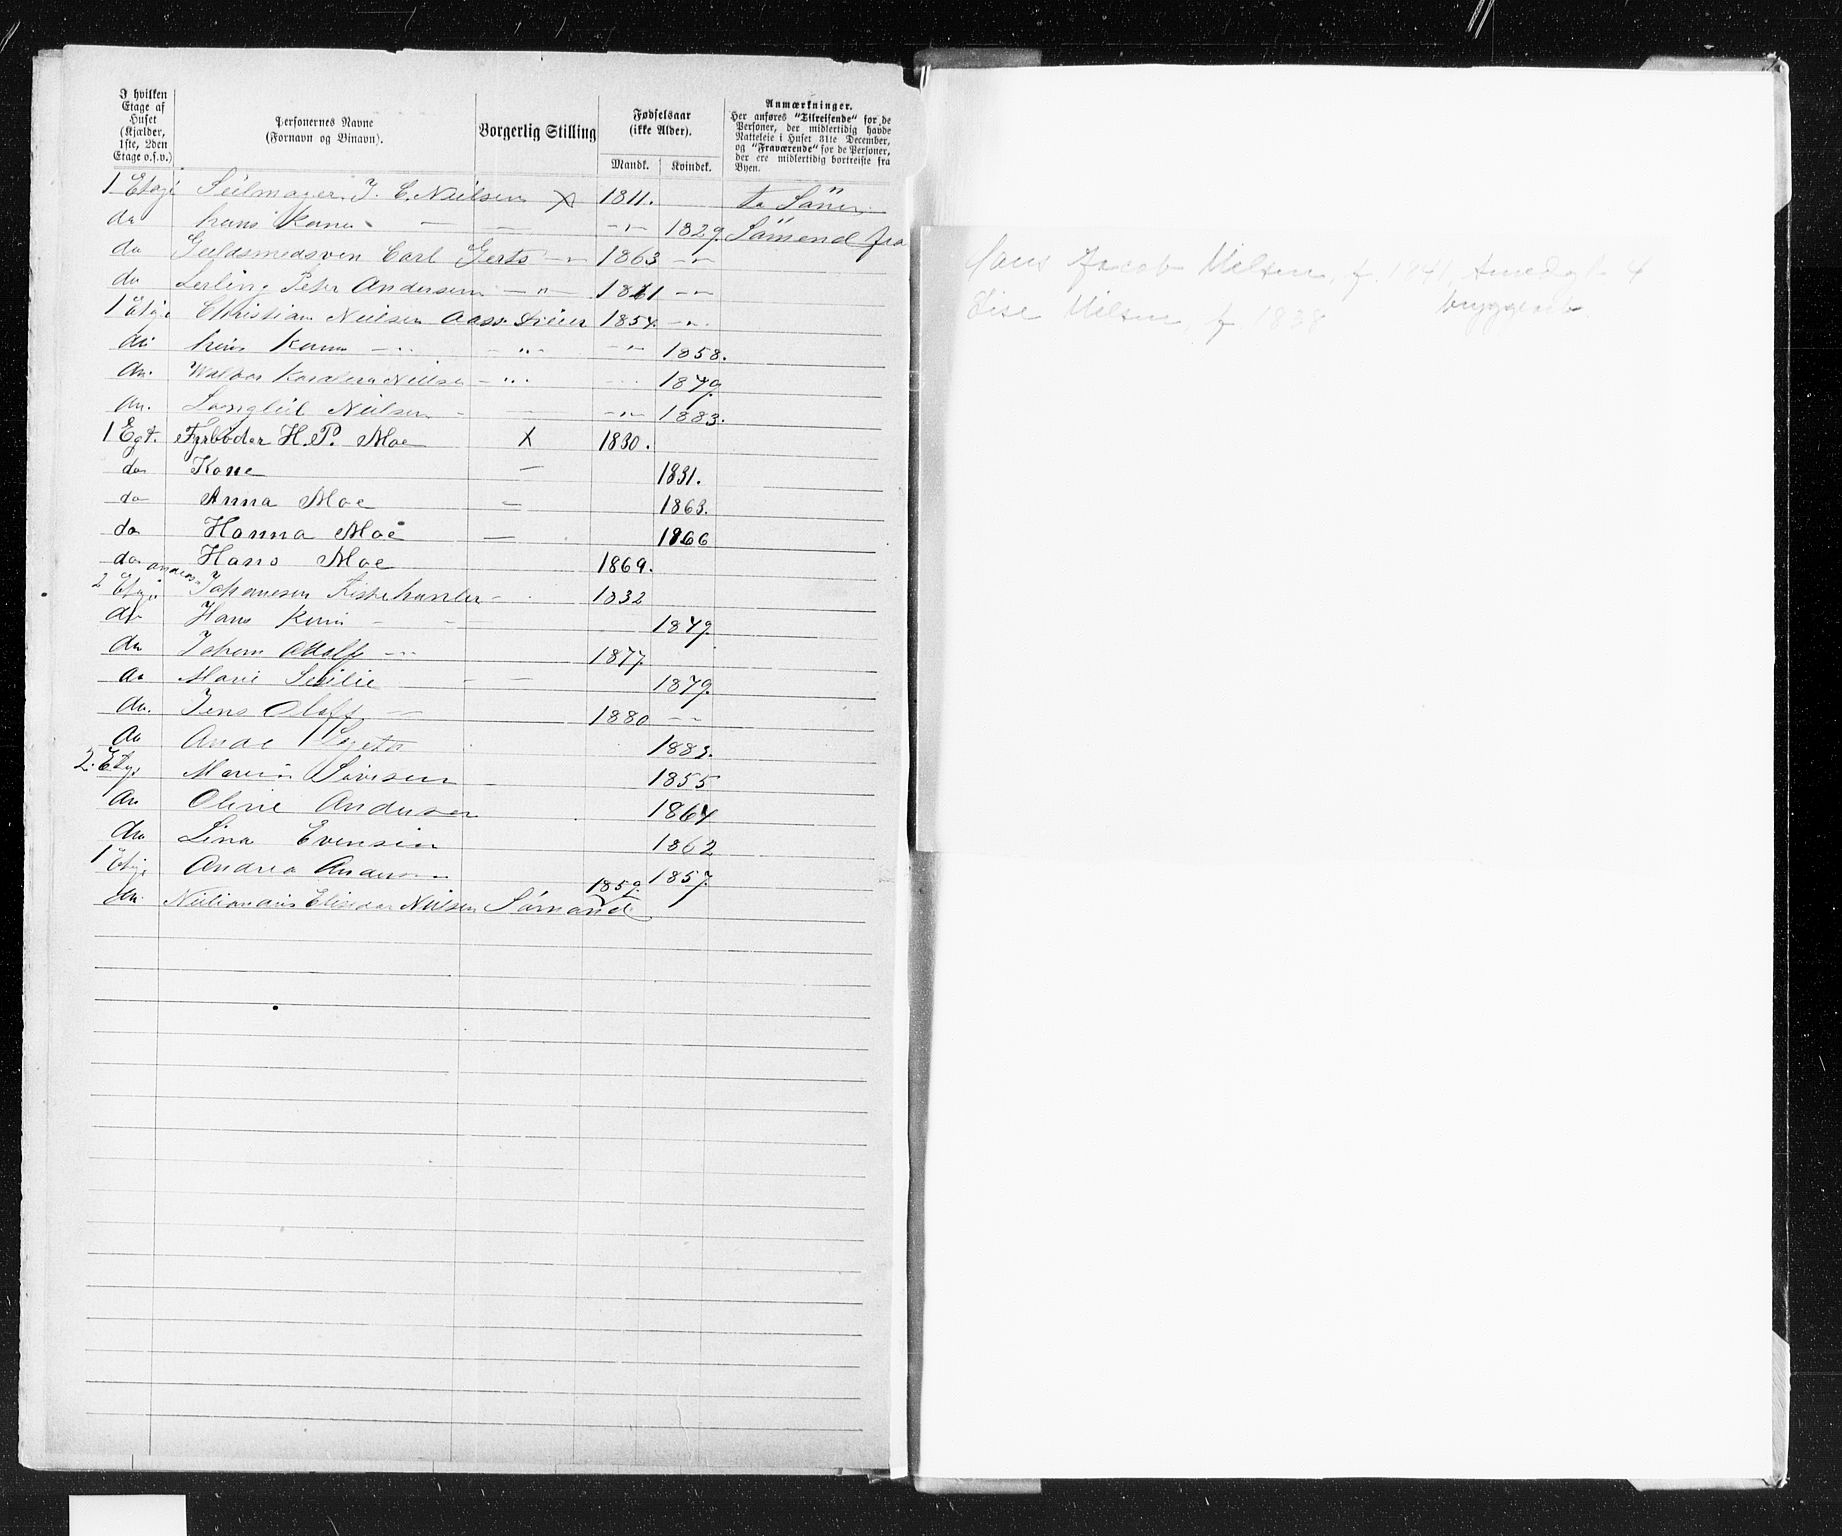 I hvilken Etage af Huset (Kjælder, 1ste, 2den Etage o.s.v.)
Personernes Navne (Fornavn og Binavn).
Borgerlig Stilling
Fødselsaar (ikke Alder).
Mandk. Kvindek.
Anmærkninger.
Her anføres "Tilreisende" for de Personer, der midlertidig havde Natteleie i Huset 31te December, og "Fraværende" for de Personer, der ere midlertidig bortreiste fra Byen.
1 Etage Seilmager J. C. Nielsen X 1811. to
do hans Kone — — 1829.
do Guldsmedsven Carl Gerts 1863
do Peter Andersen 1861
1 Etage Christian Nielsen 1854
do hans Kone 1858.
do. Nielsen 1879
do. Nielsen 1883.
1 Egt. Fyrbøder H. P. Moe X 1830.
do Kone — 1831.
do Anna Moe — 1863.
do Hanna Moe — 1866
do Hans Moe 1869.
2 Etage Johannesen 1832
do Hans Kone 1849.
do Johan Adolf 1877
do Marie 1879.
do. Jens Olaf 1880
do 1883.
2. Etage 1855
do Oline Andersen 1864
do Lina Evensen 1862
1 Etage Andrea Andersen 1857.
do. Nielsen Sömand 1859.
Hans Jacob Nilsen, f. 1841, 4
Elise Nilsen, f 1838 bryggearb.